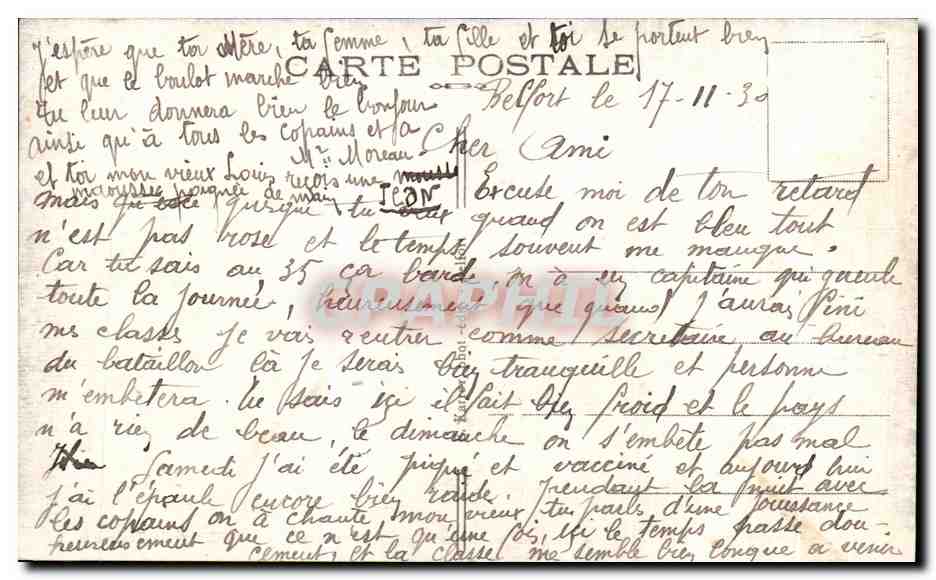 CARTE POSTALE
Belfort le 17-11-30
Cher Ami
Excuse moi de ton retard
mais puisque tu quand on est bleu tout
n'est pas rose et le temps souvent me manque.
Car tu sais au 35 ça barde, on à un capitaine qui gueule
toute la journée, heureusement que quand j'aurai fini
mes classes je vais rentrer comme secretaire au bureau
du bataillon là je serai bien tranquille et personne
m'embetera. tu sais ici il fait bien froid et le pays
n'a rien de beau, le dimanche on s'embete pas mal
Samedi j'ai été piqué et vacciné et aujourd'hui
j'ai l'épaule encore bien raide. Pendant la nuit avec
les copains on à chanté, mon vieux, tu parles d'une jouissance
heureusement que ce n'est qu'une fois, ici le temps passe dou-
cement et la classe me semble bien longue a venir
J'espère que ta Mère, ta femme, ta fille et toi se portent bien
et que le boulot marche bien
tu leur donnera bien le bonjour
ainsi qu'à tous les copains et a
Mr Moreau
et toi mon vieux Louis reçois une
maousse poignée de main JEAN
CARPHIL